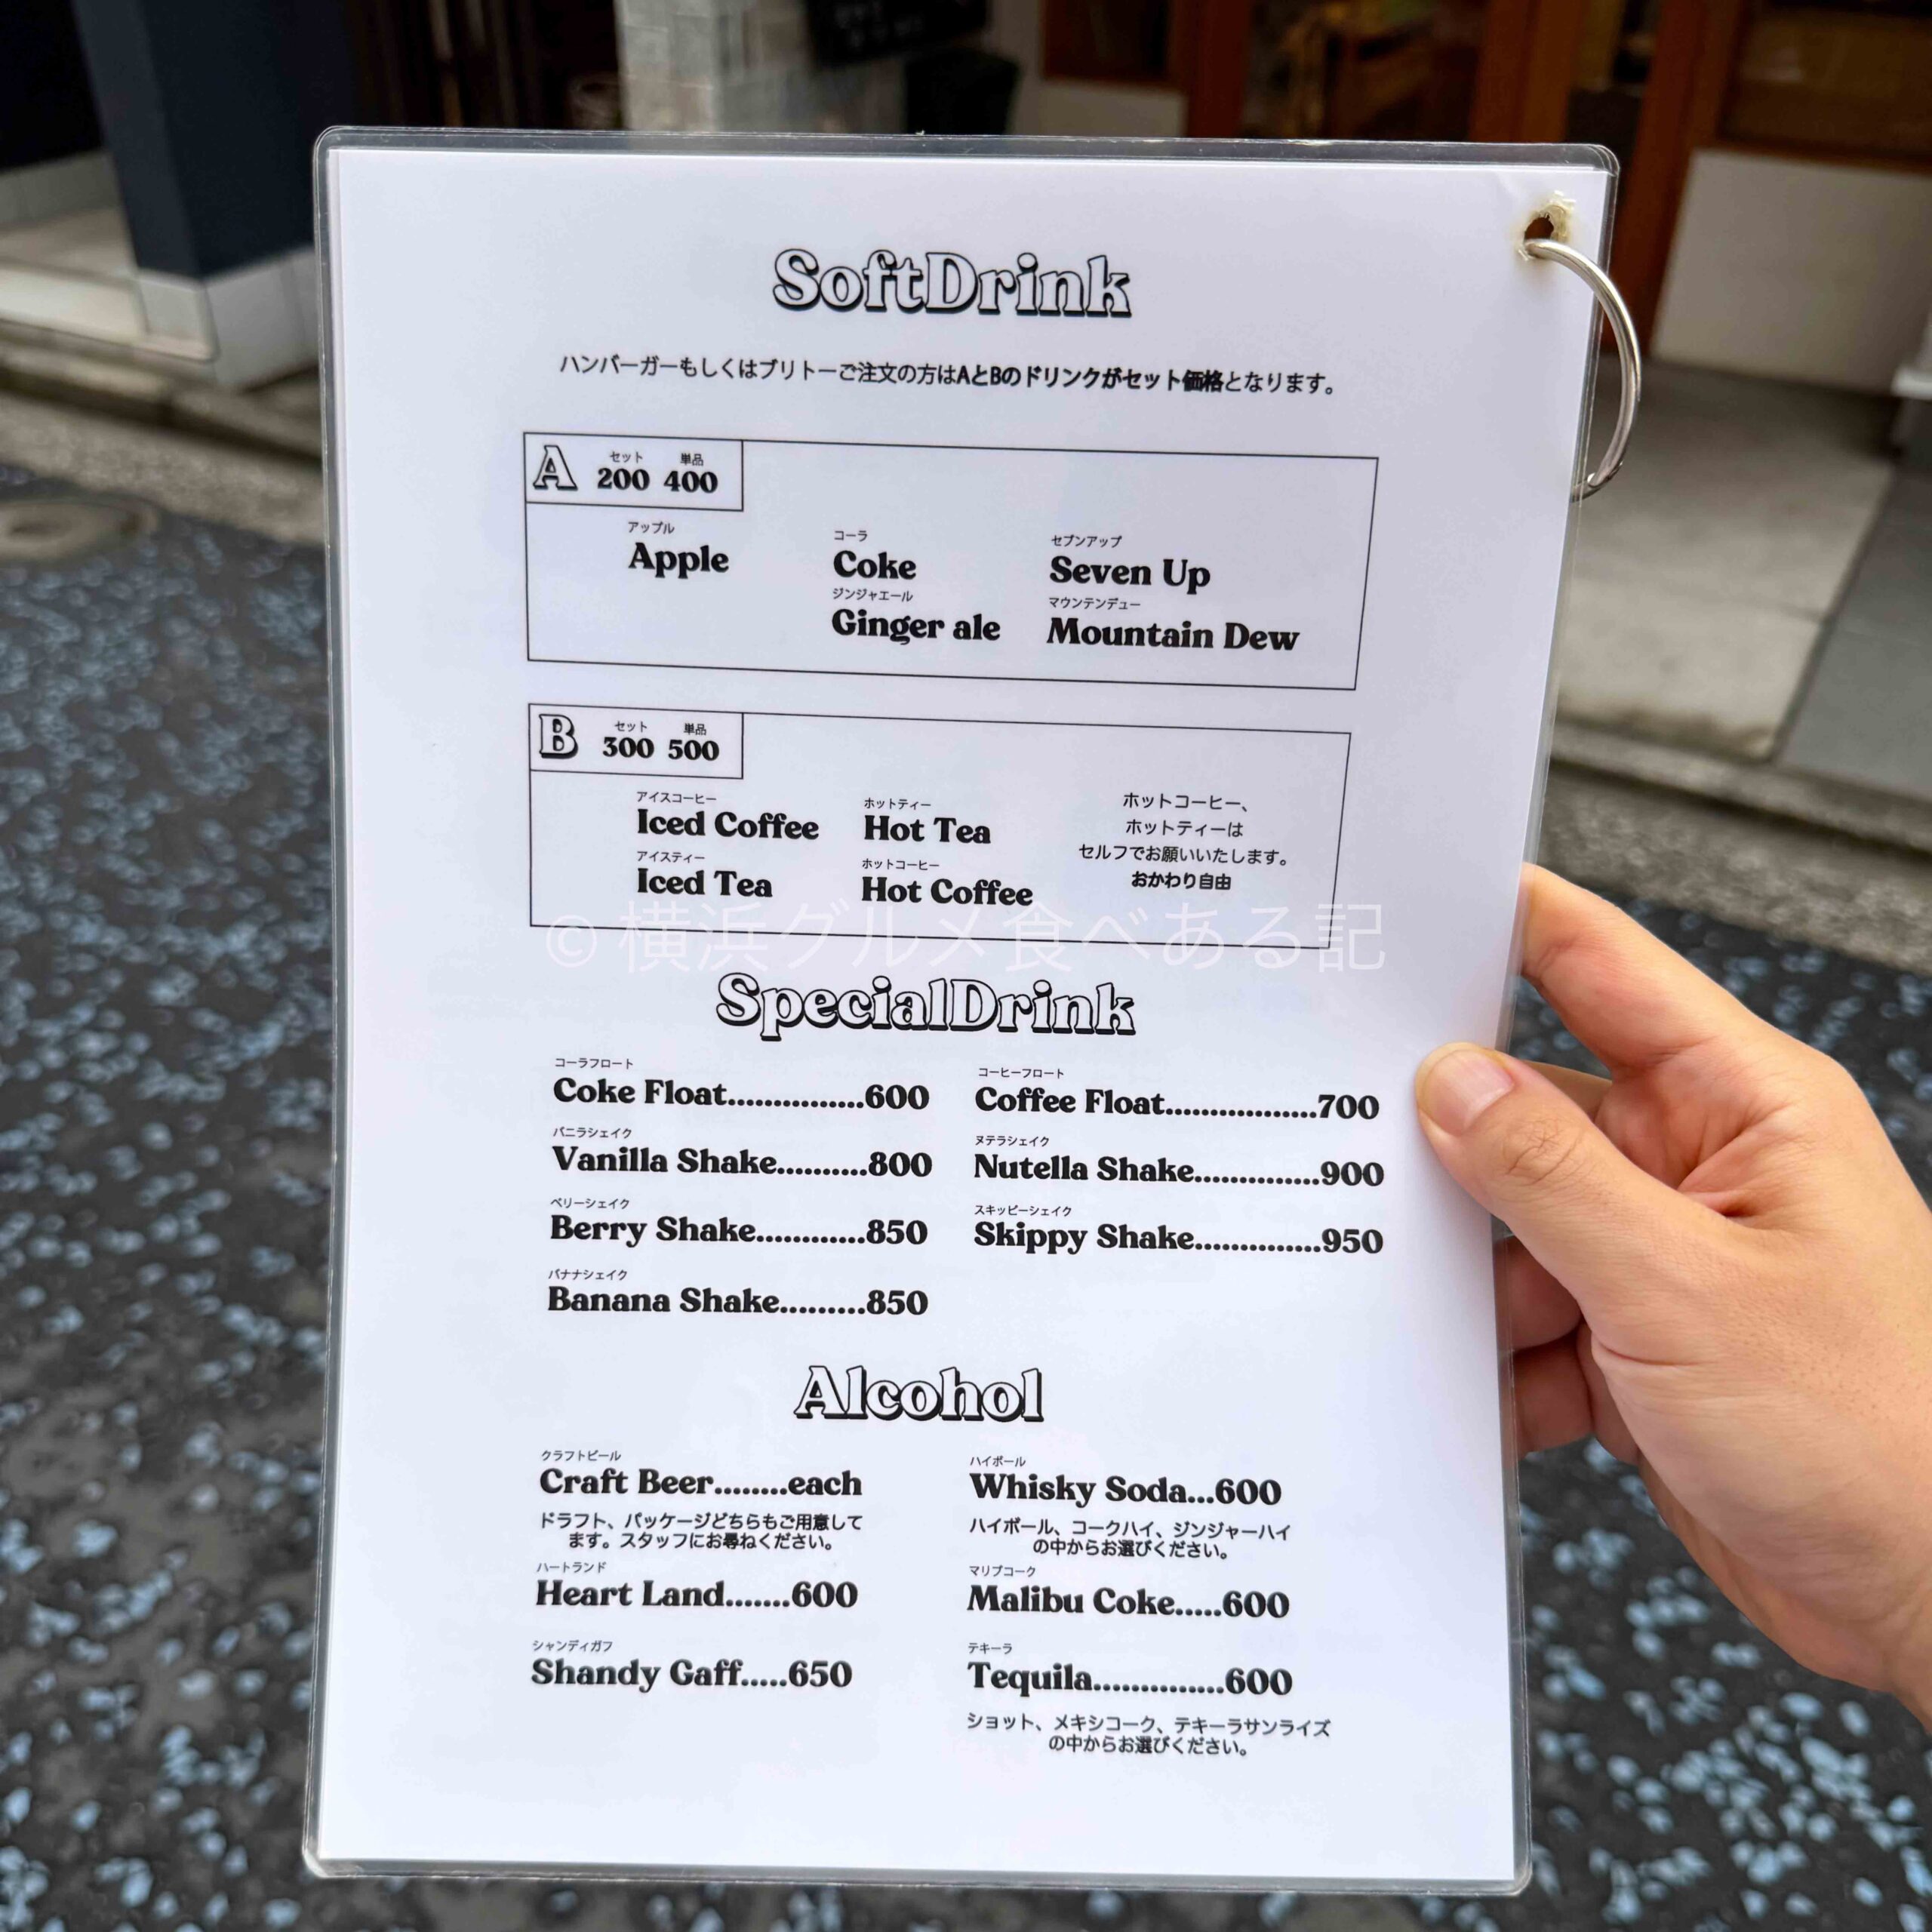 SoftDrink
ハンバーガーもしくはブリトーご注文の方はAとBのドリンクがセット価格となります。
A セット 単品
200 400
アップル コーラ セブンアップ
Apple Coke Seven Up
ジンジャエール マウンテンデュー
Ginger ale Mountain Dew
B セット 単品
300 500
アイスコーヒー ホットティー
Iced Coffee Hot Tea
アイスティー ホットコーヒー
Iced Tea Hot Coffee
ホットコーヒー、
ホットティーは
セルフでお願いいたします。
おかわり自由
© 横浜グルメ食べある記
SpecialDrink
コーラフロート コーヒーフロート
Coke Float...............600 Coffee Float.................700
バニラシェイク ヌテラシェイク
Vanilla Shake..........800 Nutella Shake..............900
ベリーシェイク スキッピーシェイク
Berry Shake............850 Skippy Shake..............950
バナナシェイク
Banana Shake.........850
Alcohol
クラフトビール ハイボール
Craft Beer........each Whisky Soda...600
ドラフト、パッケージどちらもご用意して
ます。スタッフにお尋ねください。
ハイボール、コークハイ、ジンジャーハイ
の中からお選びください。
ハートランド マリブコーク
Heart Land.......600 Malibu Coke.....600
シャンディガフ テキーラ
Shandy Gaff.....650 Tequila..............600
ショット、メキシコーク、テキーラサンライズ
の中からお選びください。